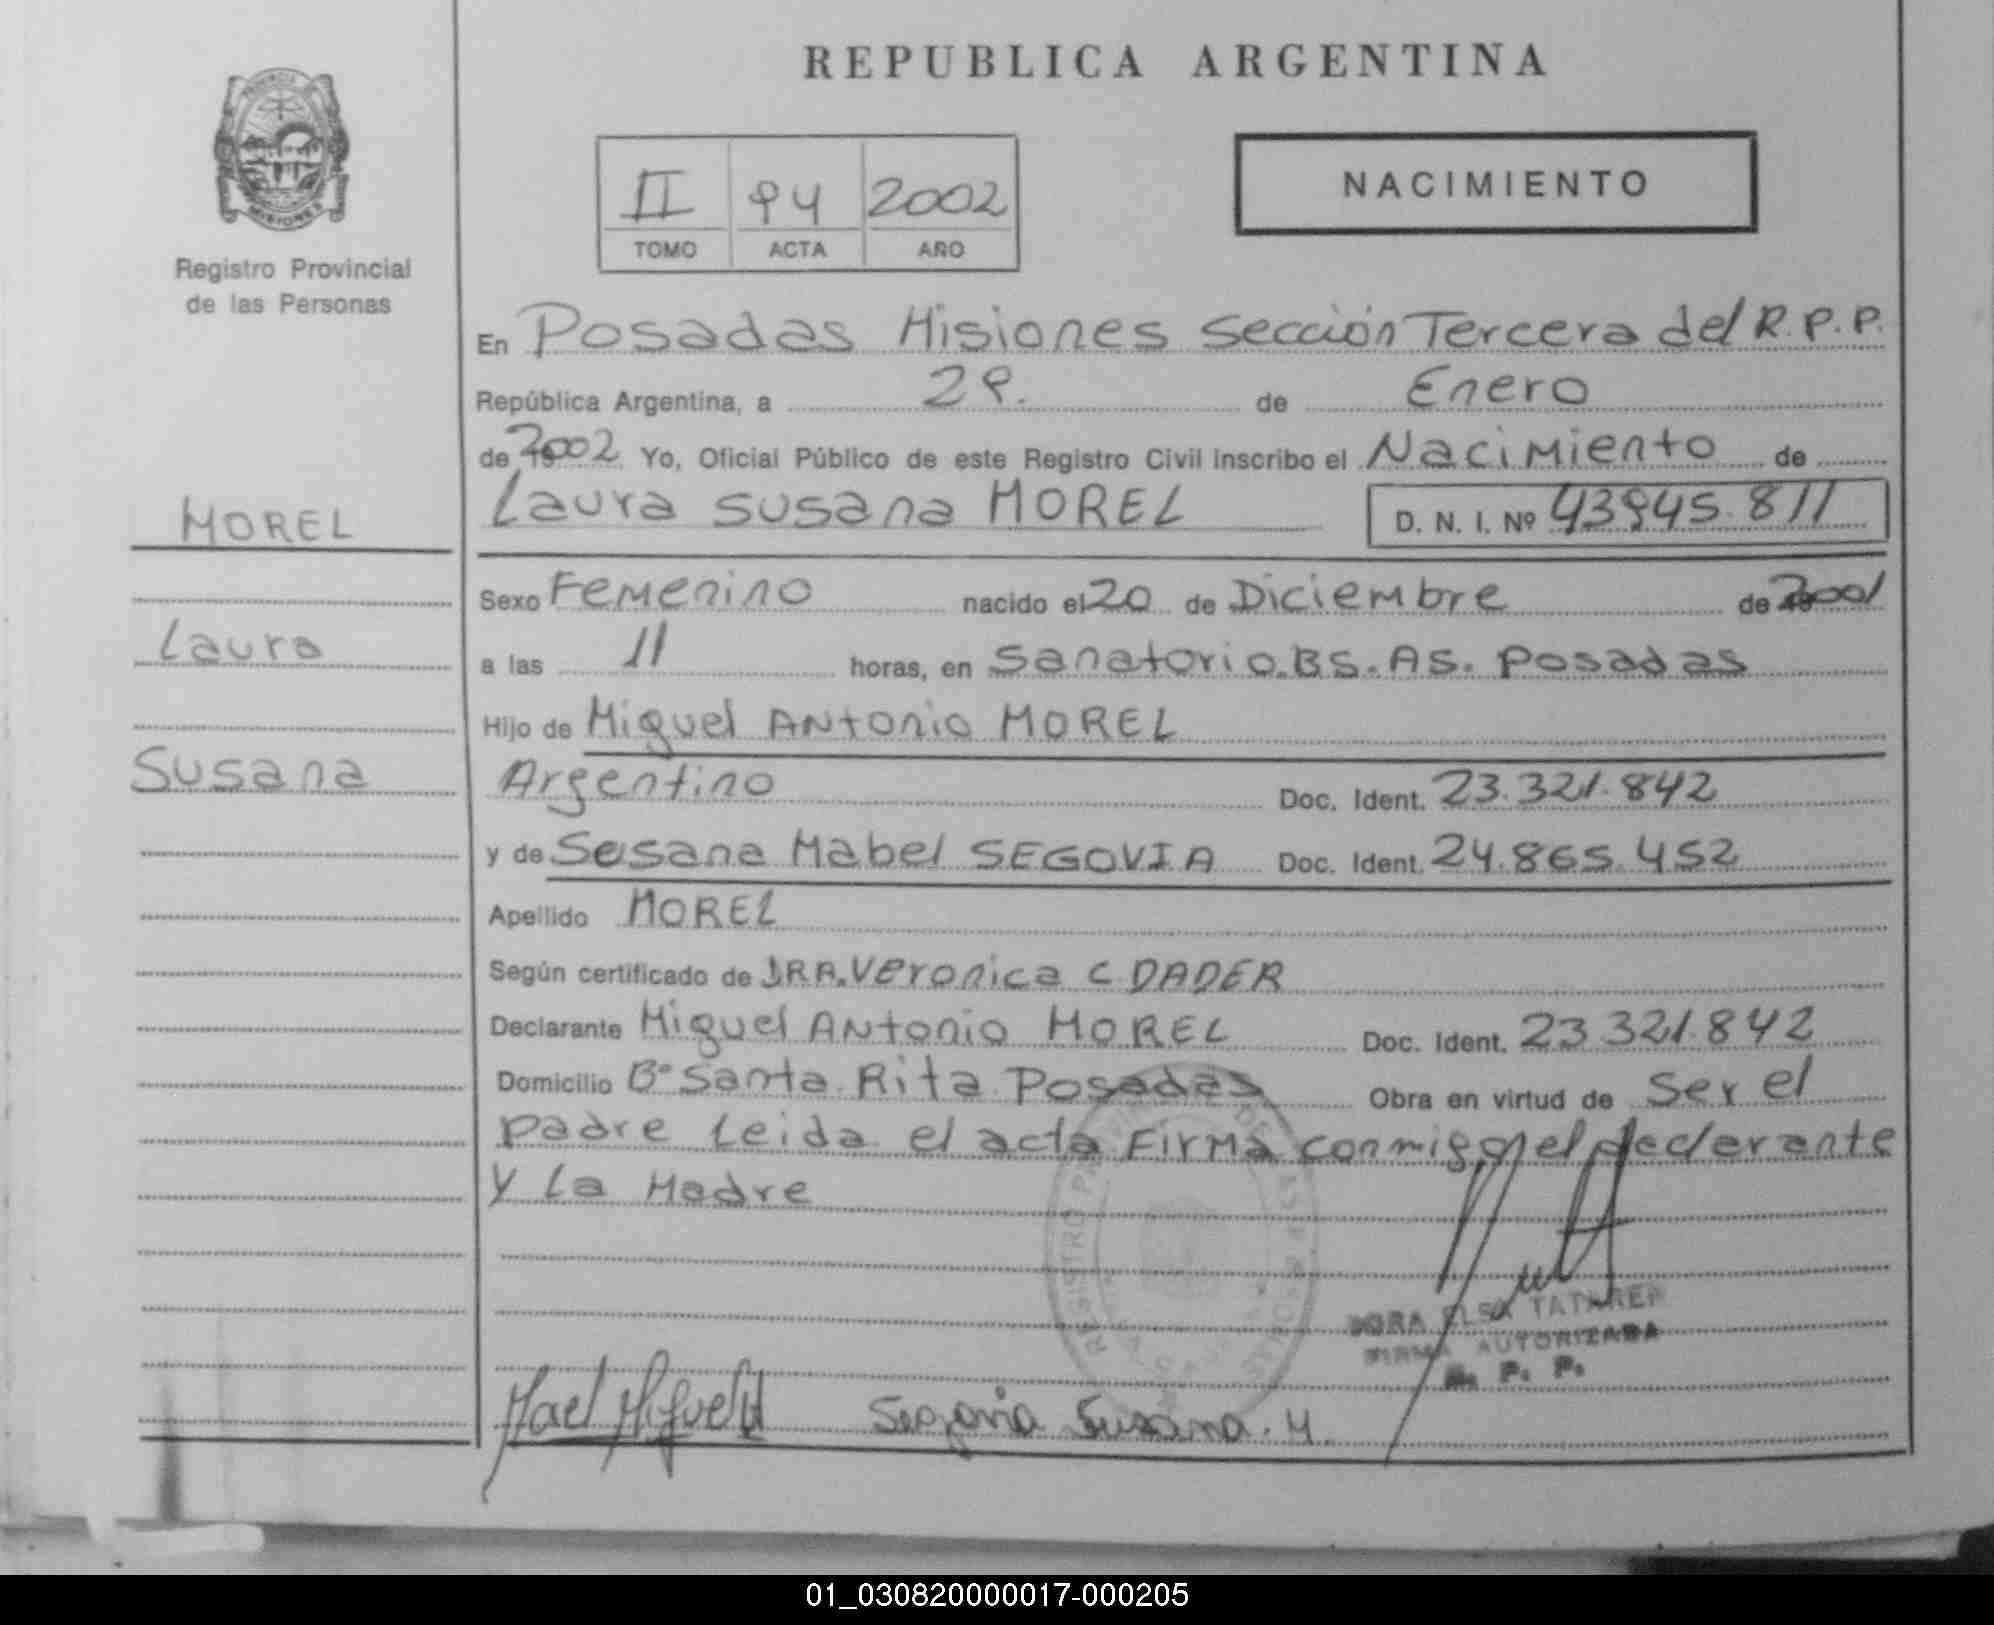 REPUBLICA ARGENTINA
PROVINCIA
MISIONES
Registro Provincial
de las Personas
II 94 2002
TOMO ACTA AÑO
NACIMIENTO
En Posadas Misiones Sección Tercera del R.P.P.
República Argentina, a 29. de Enero
de 2002 Yo, Oficial Público de este Registro Civil inscribo el Nacimiento de
Laura Susana MOREL D. N. I. Nº 43945.811
MOREL
Laura
Susana
Sexo Femenino nacido el 20 de Diciembre de 2001
a las 11 horas, en Sanatorio.BS.AS. Posadas
Hijo de Miguel Antonio MOREL
Argentino Doc. Ident. 23.321.842
y de Sesana Mabel SEGOVIA Doc. Ident. 24.865.452
Apellido MOREL
Según certificado de DRA. Veronica C DADER
Declarante Miguel Antonio MOREL Doc. Ident. 23 321.842
Domicilio Bº Santa Rita Posadas Obra en virtud de Ser el
padre Leida el acta Firma conmigo el declarante
y La Madre
REGISTRO
ELSA
FIRMA AUTORIZADA
R. P. P.
Segovia Susana. M.
01_030820000017-000205